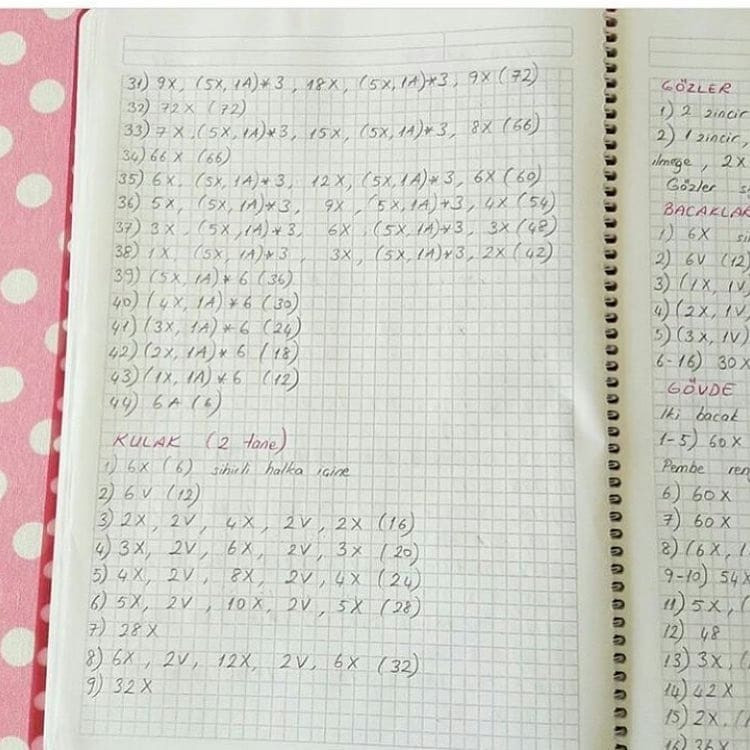 31) 9X, (5X, 1A)*3, 18X, (5X, 1A)*3, 9X (72)
32) 72X (72)
33) 7X, (5X, 1A)*3, 15X, (5X, 1A)*3, 8X (66)
34) 66X (66)
35) 6X, (5X, 1A)*3, 12X, (5X, 1A)*3, 6X (60)
36) 5X, (5X, 1A)*3, 9X, (5X, 1A)*3, 4X (54)
37) 3X, (5X, 1A)*3, 6X, (5X, 1A)*3, 3X (48)
38) 1X, (5X, 1A)*3, 3X, (5X, 1A)*3, 2X (42)
39) (5X, 1A)*6 (36)
40) (4X, 1A)*6 (30)
41) (3X, 1A)*6 (24)
42) (2X, 1A)*6 (18)
43) (1X, 1A)*6 (12)
44) 6A (6)
KULAK (2 tane)
1) 6X (6) sihirli halka içine
2) 6V (12)
3) 2X, 2V, 4X, 2V, 2X (16)
4) 3X, 2V, 6X, 2V, 3X (20)
5) 4X, 2V, 8X, 2V, 4X (24)
6) 5X, 2V, 10X, 2V, 5X (28)
7) 28X
8) 6X, 2V, 12X, 2V, 6X (32)
9) 32X
GÖZLER
1) 2 zincir
2) 1 zincir,
ilmeğe, 2X
Gözler
BACAKLAR
1) 6X
2) 6V (12)
3) (1X, 1V,
4) (2X, 1V,
5) (3X, 1V)
6-16) 30X
GÖVDE
İki bacak
1-5) 60X
Pembe
6) 60X
7) 60X
8) (6X, 1
9-10) 54X
11) 5X, (
12) 48
13) 3X, (
14) 42X
15) 2X, (
16) 36X